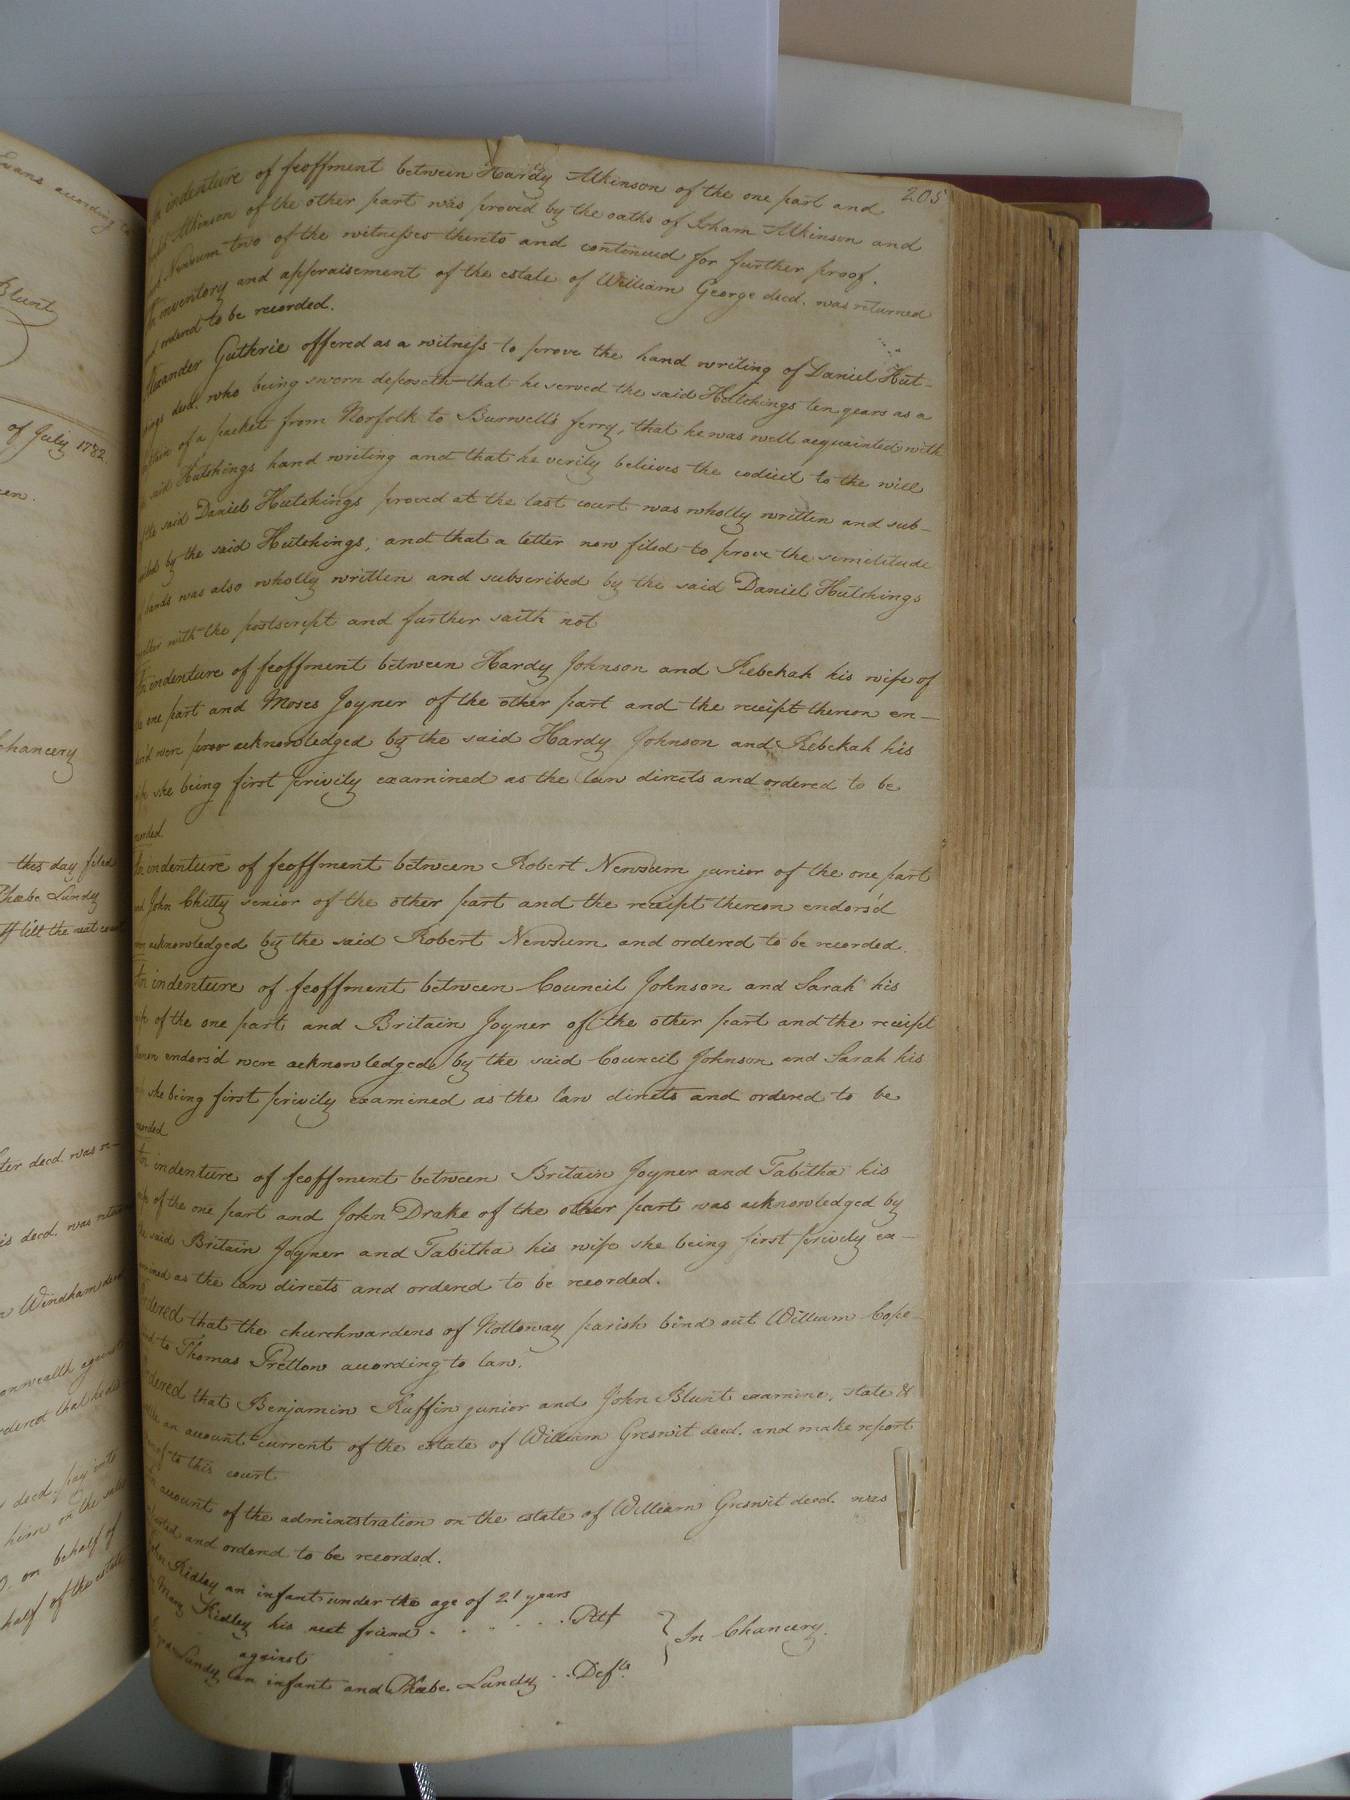 Evans according to
Blunt
of July 1782
Chancery
this day filed
Phœbe Lundy
till the next court
decd. was re-
decd. was
Windham decd
against
decd. pay unto
him on the
on behalf of
half of the estate
205
indenture of feoffment between Hardy Atkinson of the one part and
Atkinson of the other part was proved by the oaths of Isham Atkinson and
Newsum two of the witnesses thereto and continued for further proof.
An inventory and appraisement of the estate of William George decd. was returned
and ordered to be recorded.
Alexander Guthrie offered as a witness to prove the hand writing of Daniel Hut-
chings decd. who being sworn deposeth that he served the said Hutchings ten years as a
captain of a packet from Norfolk to Burwell's ferry, that he was well acquainted with
said Hutchings hand writing and that he verily believes the codicil to the will
of the said Daniel Hutchings proved at the last court was wholly written and sub-
scribed by the said Hutchings, and that a letter now filed to prove the similitude
hands was also wholly written and subscribed by the said Daniel Hutchings
together with the postscript and further saith not
An indenture of feoffment between Hardy Johnson and Rebekah his wife of
the one part and Moses Joyner of the other part and the receipt thereon en-
dors'd were prov acknowledged by the said Hardy Johnson and Rebekah his
wife she being first privily examined as the law directs and ordered to be
recorded
An indenture of feoffment between Robert Newsum junior of the one part
and John Chitty senior of the other part and the receipt thereon endors'd
were acknowledged by the said Robert Newsum and ordered to be recorded.
An indenture of feoffment between Council Johnson and Sarah his
wife of the one part and Britain Joyner of the other part and the receipt
thereon endors'd were acknowledged by the said Council Johnson and Sarah his
wife she being first privily examined as the law directs and ordered to be
recorded
An indenture of feoffment between Britain Joyner and Tabitha his
wife of the one part and John Drake of the other part was acknowledged by
the said Britain Joyner and Tabitha his wife she being first privily ex-
amined as the law directs and ordered to be recorded.
Ordered that the churchwardens of Nottoway parish bind out William Cope-
land to Thomas Pretlow according to law.
Ordered that Benjamin Ruffin junior and John Blunt examine, state &
settle an account current of the estate of William Greswit decd. and make report
thereof to this court
An account of the administration on the estate of William Greswit decd. was
returned and ordered to be recorded.
John Ridley an infant under the age of 21 years
Mary Ridley his next friend . . . . . . Pltf
against } In Chancery.
Lundy an infant and Phœbe Lundy . . Defts.